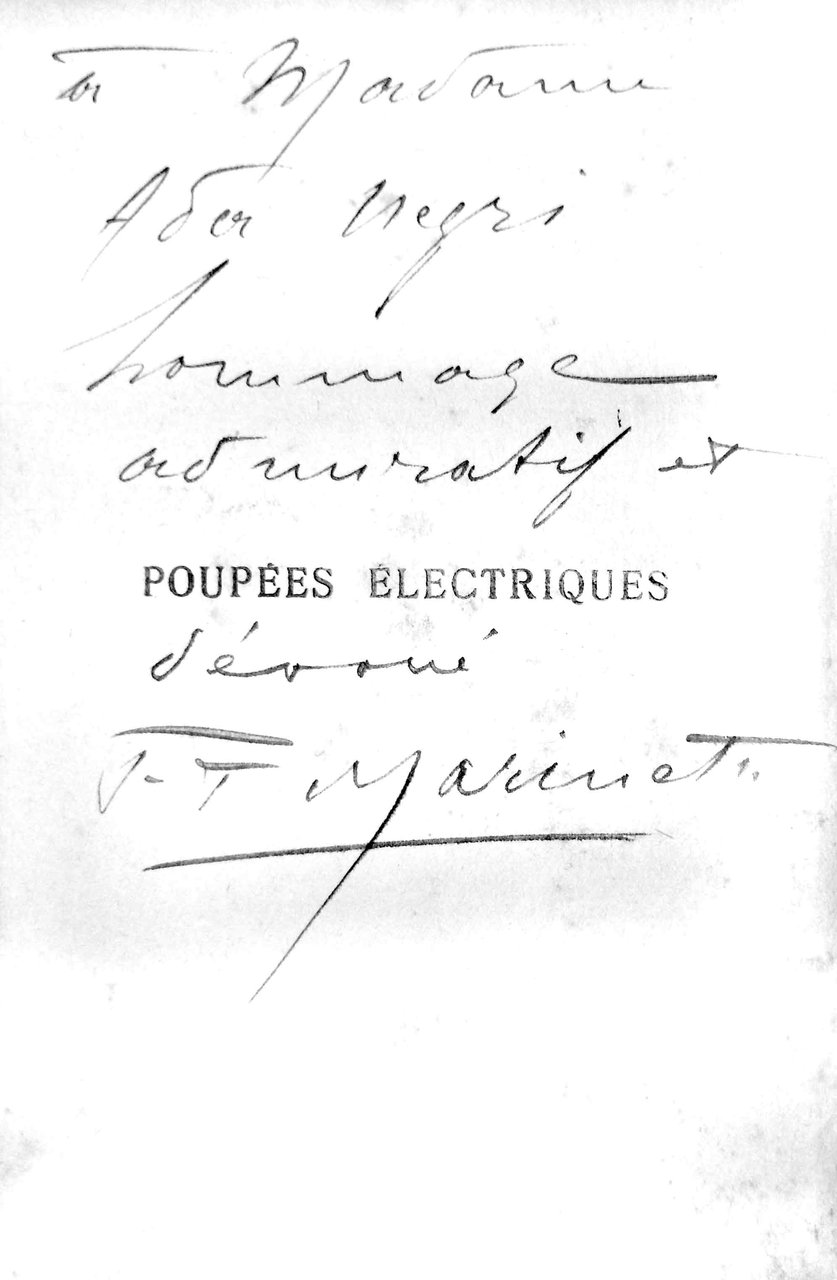 à Madame
Ada Negri
hommage
admiratif et
POUPÉES ÉLECTRIQUES
dévoué
F. T. Marinetti